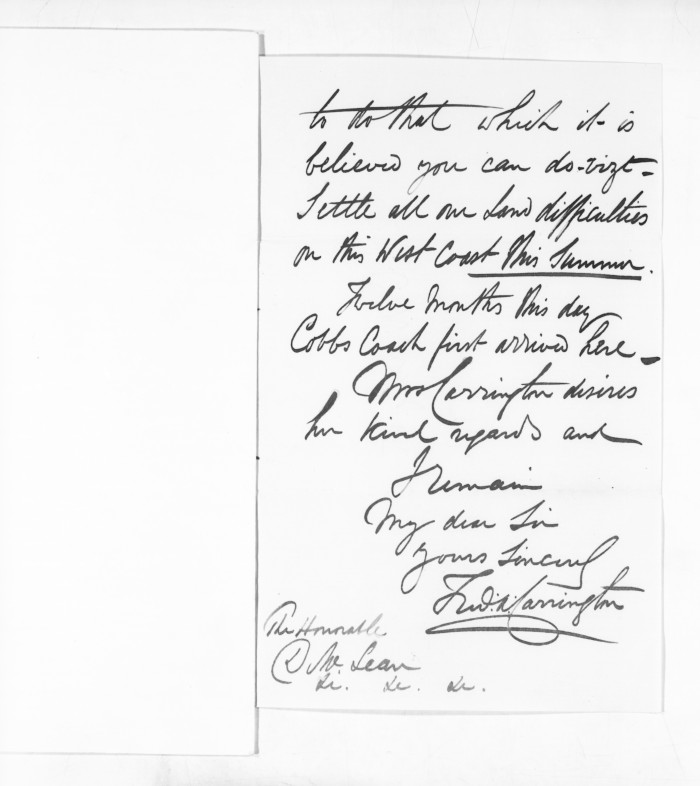 ~~to do that~~ which it is
believed you can do - vizt -
Settle all our Land difficulties
on this West Coast this Summer.
Twelve Months this day
Cobbs Coach first arrived here -
Mrs Carrington desires
her kind regards and
I remain
My dear Sir
Yours Sincerely
Fred. A. Carrington
The Honorable
D McLean
&c. &c. &c.